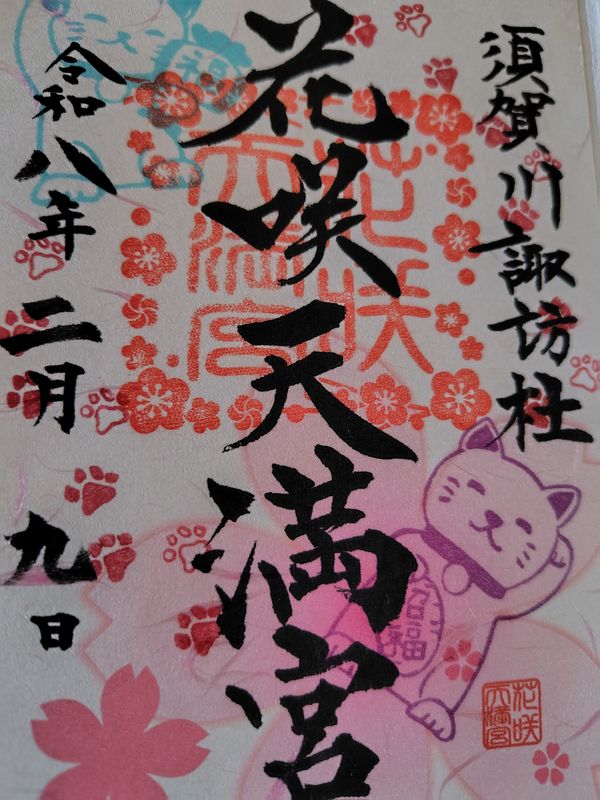 須賀川諏訪社
花咲天満宮
花咲
天満宮
令和八年二月九日
福
招福
花咲
天満宮